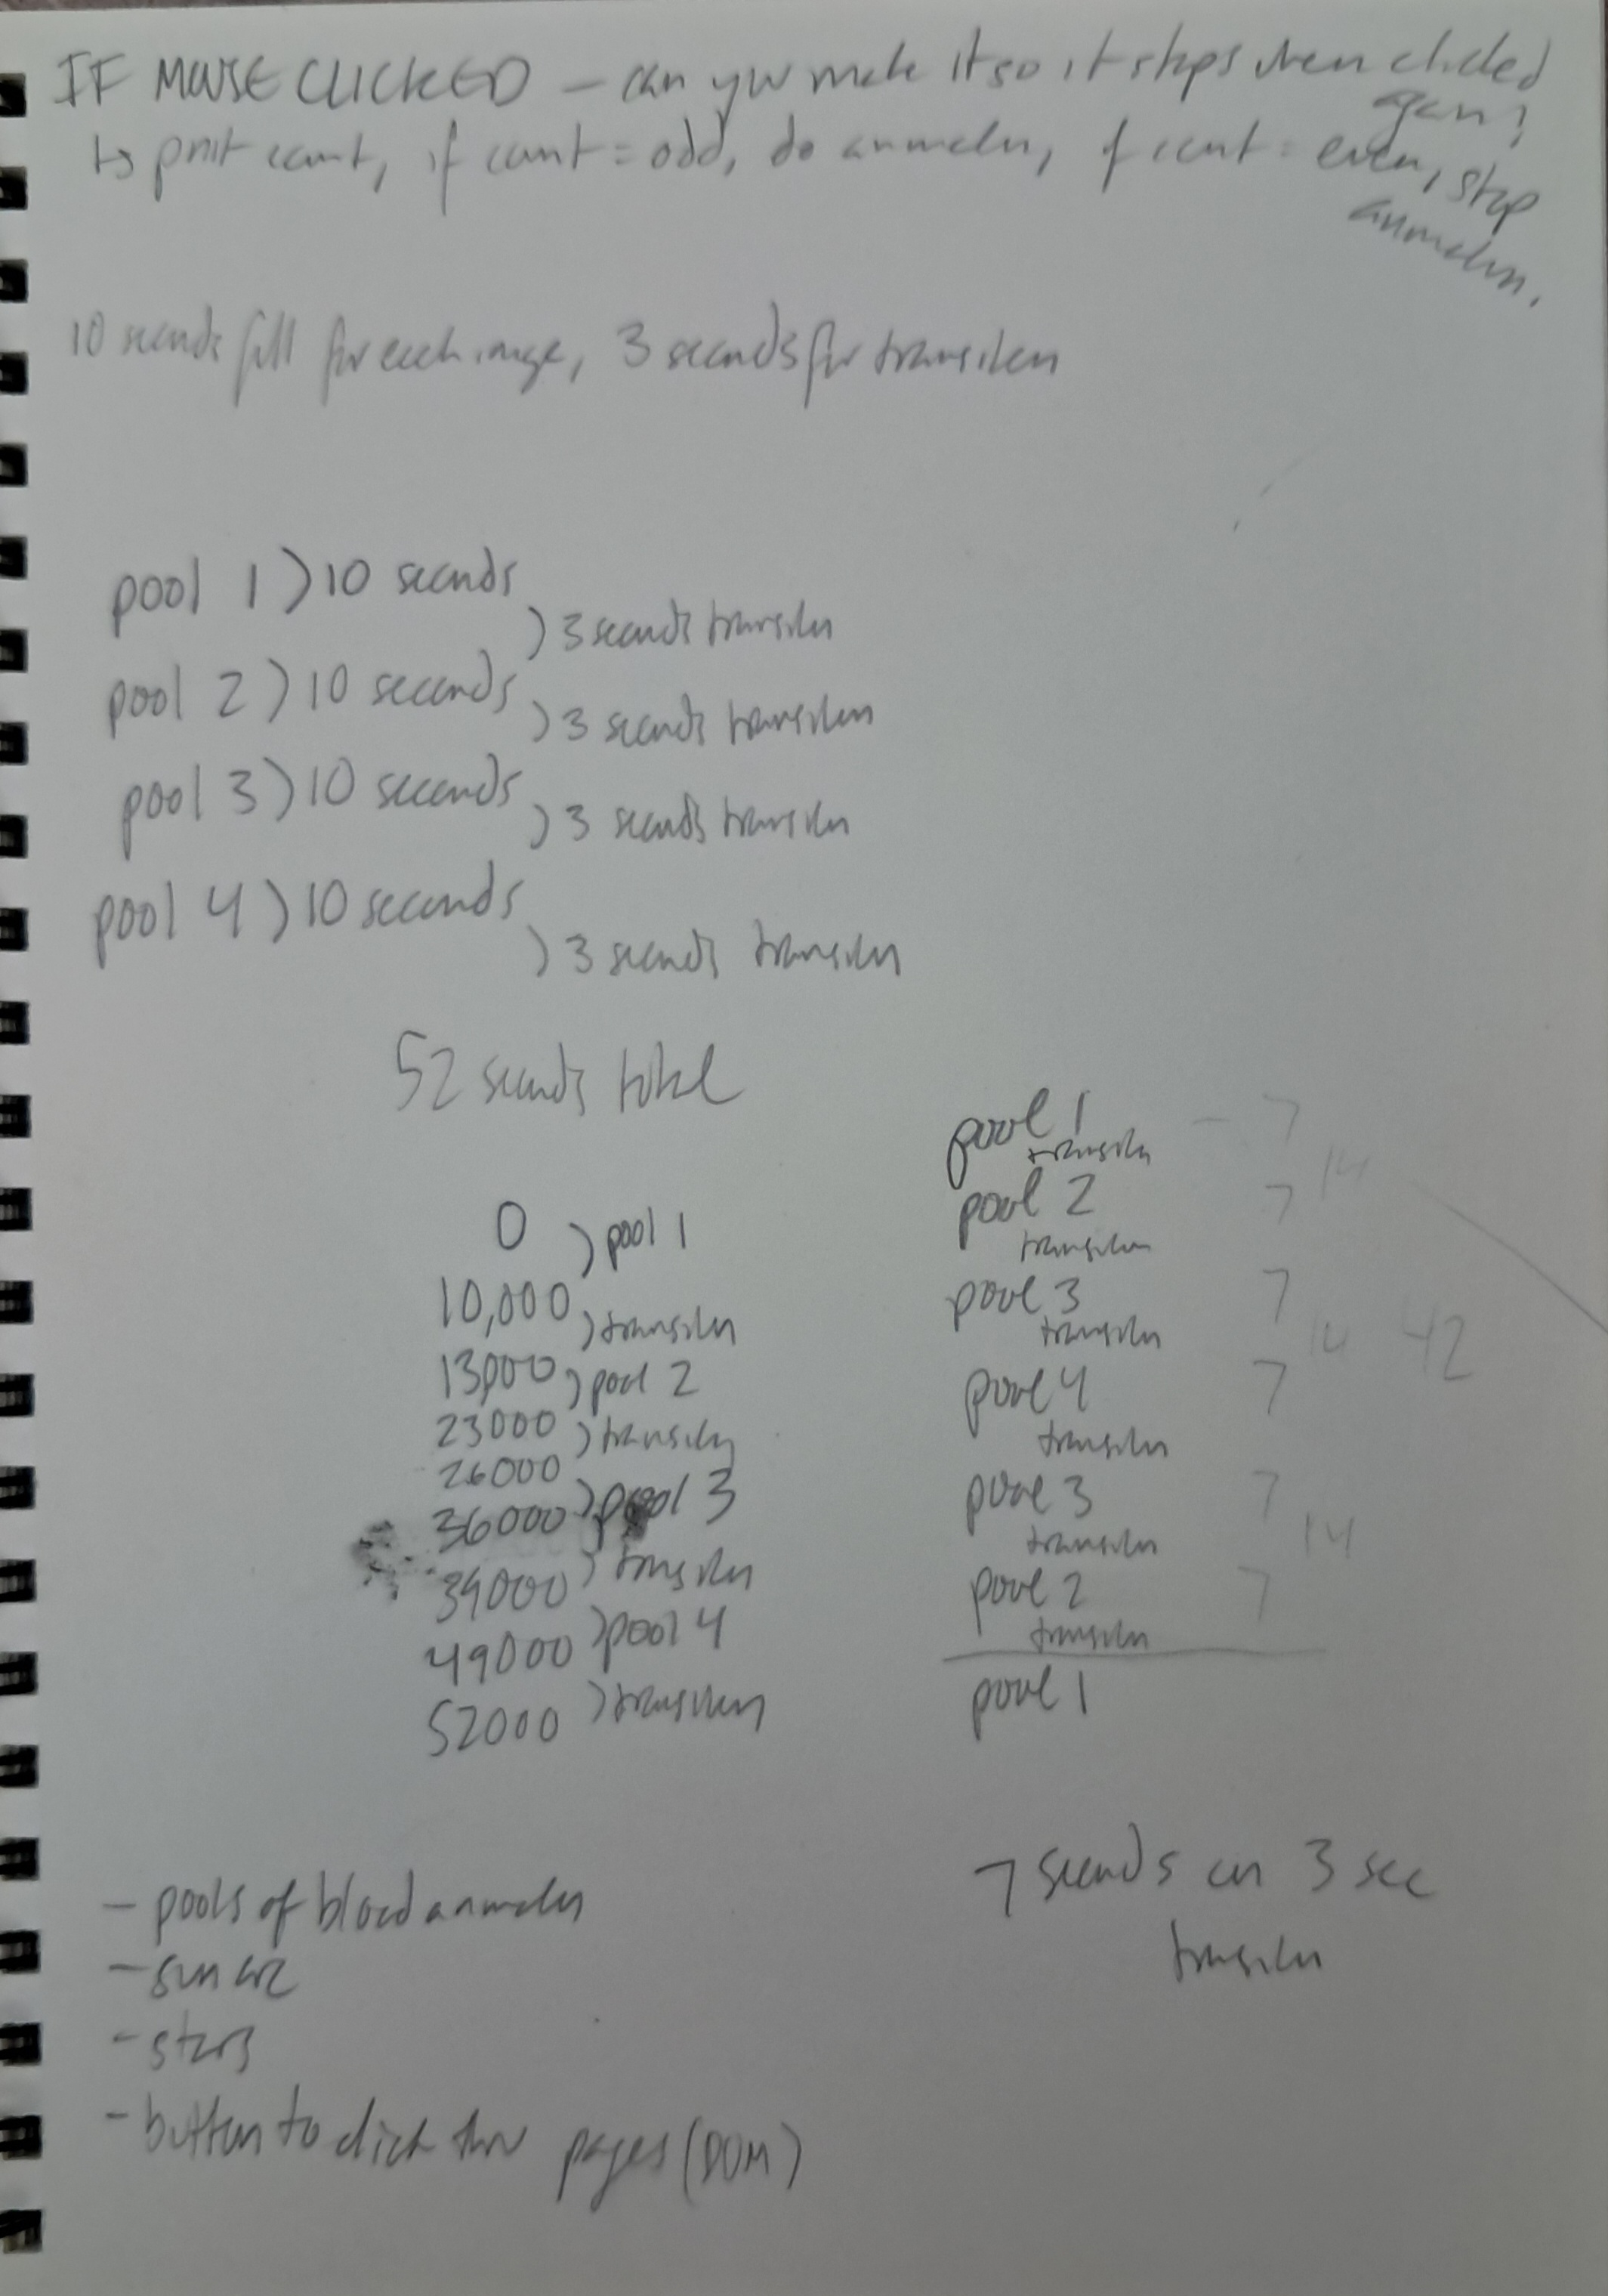 IF MOUSE CLICKED – can you make it so it stops when clicked
again?
↳ print count, if count = odd, do animation, if count = even, stop
animation.
10 seconds fill for each image, 3 seconds for transition
pool 1 ) 10 seconds
) 3 seconds transition
pool 2 ) 10 seconds
) 3 seconds transition
pool 3 ) 10 seconds
) 3 seconds transition
pool 4 ) 10 seconds
) 3 seconds transition
52 seconds total
0
) pool 1
10,000
) transition
13,000
) pool 2
23000
) transition
26000
) pool 3
36000
) transition
39000
) pool 4
49000
) transition
52000
pool 1 – 7
transition
14
pool 2 7
transition
pool 3 7
transition
14 42
pool 4 7
transition
pool 3 7
transition
14
pool 2 7
transition
pool 1
7 seconds on 3 sec
transition
– pools of blood animation
– sun arc
– stars
– button to click thru pages (DOM)